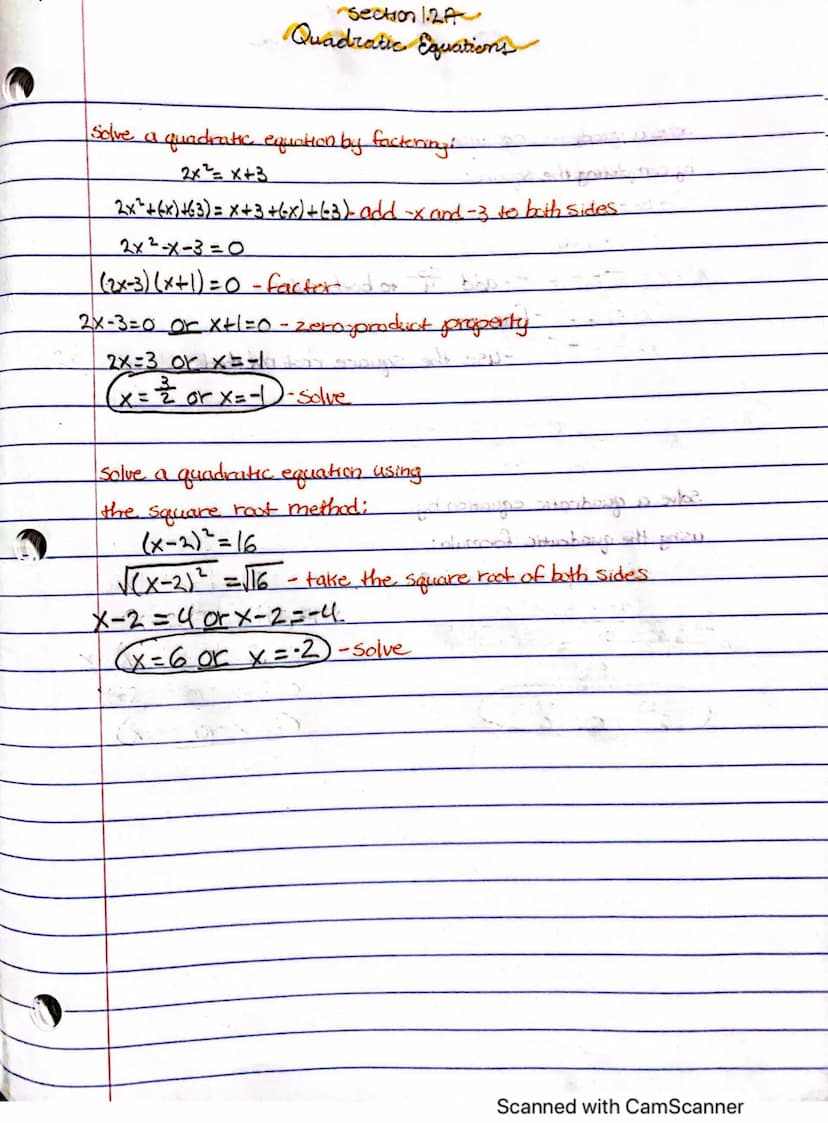 Section 1.2A
Quadratic Equations
Solve a quadratic equation by factering:
2x²= x+3
2x²+(-x)+(-3) = x+3+(-x)+(-3) - add -x and -3 to both sides
2x²-x-3=0
(2x-3)(x+1)=0 - factor
2x-3=0 or x+1=0 - zero-product property
2x=3 or x=-1
x=3/2 or x=-1 - Solve
Solve a quadratic equation using
the square root method:
(x-2)²=16
√(x-2)² =√16 - take the square root of both sides
x-2=4 or x-2=-4
x=6 or x=-2 - solve
Scanned with CamScanner